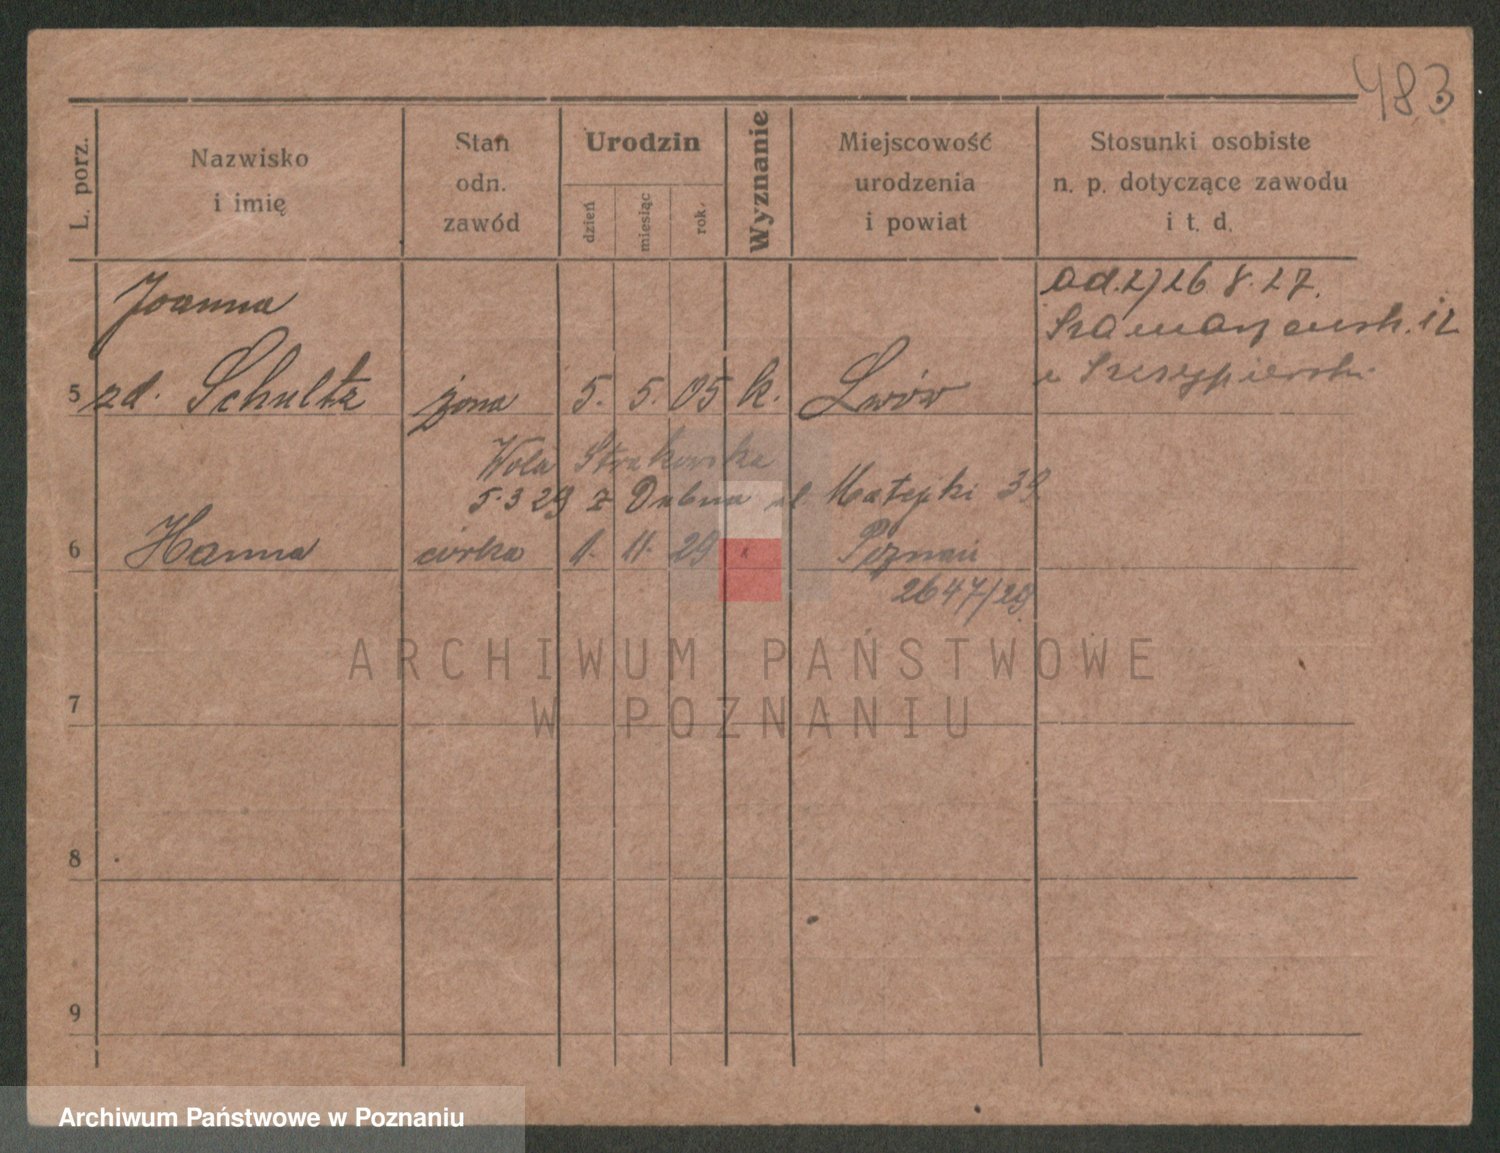 483
L. porz.
Nazwisko
i imię
Stan
odn.
zawód
Urodzin
dzień
miesiąc
rok.
Wyznanie
Miejscowość
urodzenia
i powiat
Stosunki osobiste
n. p. dotyczące zawodu
i t. d.
Joanna
ad. 2) 26 8. 27.
12
5 zd. Schultz żona 5. 5. 05 k. Lwów
Wola
5. 3 29 z Dubna ul. Matejki 39
6 Hanna córka 1. 11. 29 Poznań
2647/29
ARCHIWUM PAŃSTWOWE
W POZNANIU
7
8
9
Archiwum Państwowe w Poznaniu